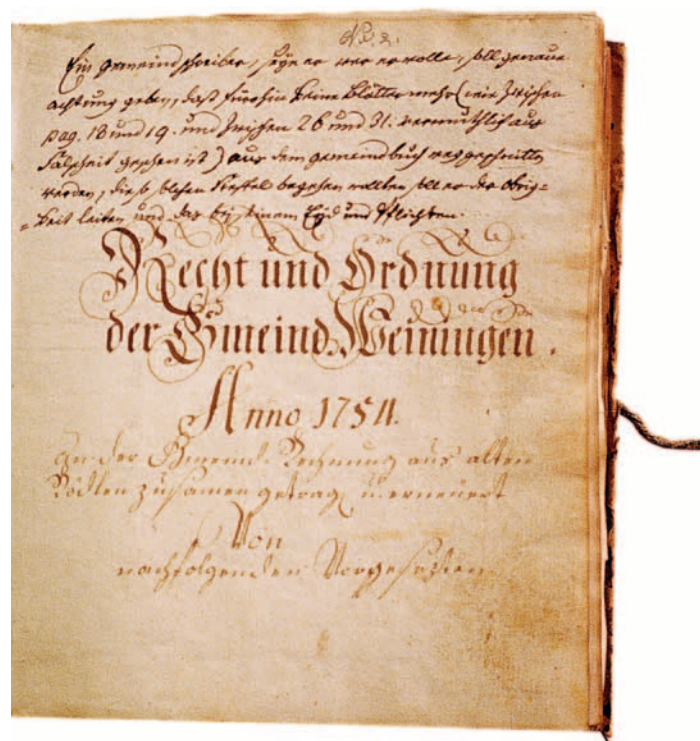 No. 2.
Ein gemeindschreiber, seye er wer er wolle, soll genaue
achtung geben, daß fürohin keine blätter mehr (wie zwischen
pag. 18 und 19. und zwischen 26 und 31. vermuthlich aus
falschheit geschehen ist) aus dem gemeindbuch weggeschnitten
werden, die so
begehen wollten soll er der obrig=
=keit leiten und das bey seinem Eyd und Pflichten.
Recht und Ordnung
der Gmeind Weiningen.
Anno 1754.
an der Gmeind-Rechnung aus alten
Rödlen zusamen getrag. u. erneuert
Von
nachfolgenden Vorgesezten